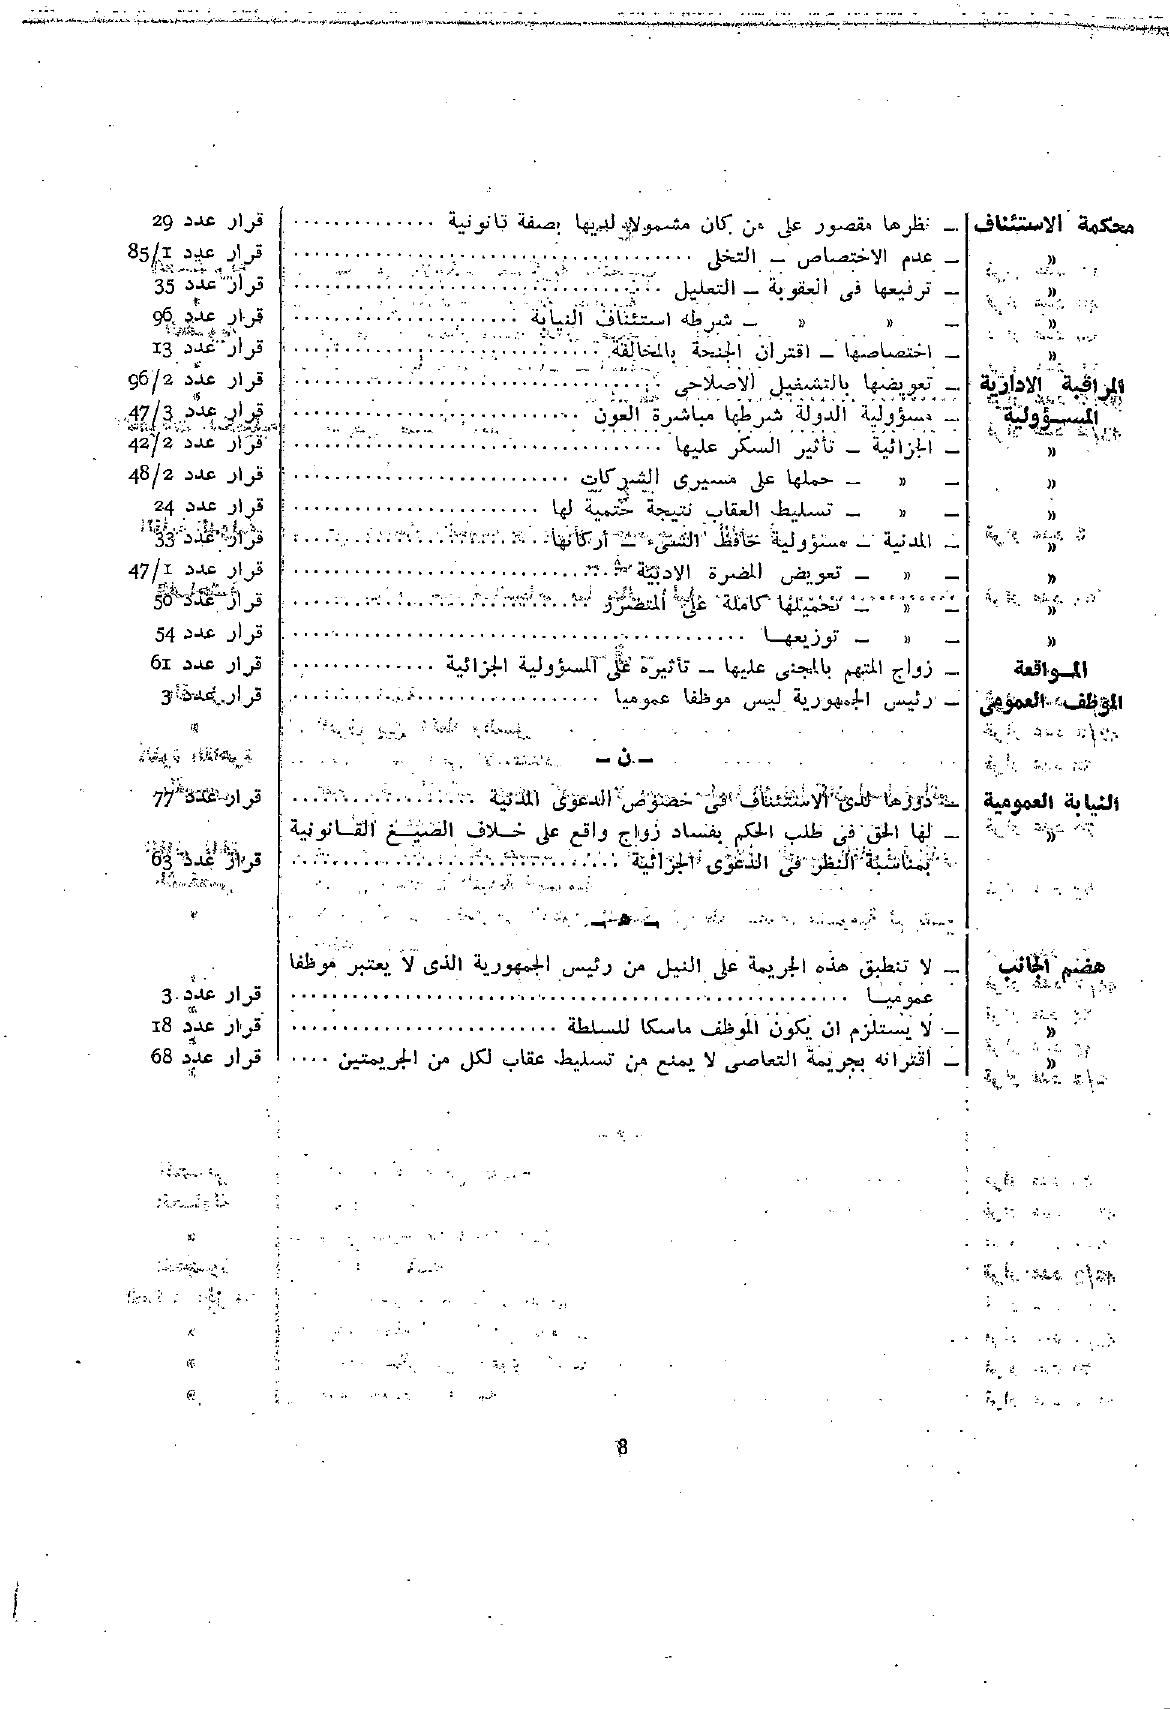 محكمة الاستئناف – نظرها مقصور على من كان مشمولا لديها بصفة قانونية .............. قرار عدد 29
» – عدم الاختصاص – التخلى .............. قرار عدد 85/1
» – ترفيعها فى العقوبة – التعليل .............. قرار عدد 35
» – » » – شرطه استئناف النيابة .............. قرار عدد 96
» – اختصاصها – اقتران الجنحة بالمخالفة .............. قرار عدد 13
المراقبة الادارية – تعويضها بالتشغيل الاصلاحى .............. قرار عدد 96/2
المسؤولية – مسؤولية الدولة شرطها مباشرة العون .............. قرار عدد 47/3
» – الجزائية – تأثير السكر عليها .............. قرار عدد 42/2
» – » – حملها على مسيرى الشركات .............. قرار عدد 48/2
» – » – تسليط العقاب نتيجة حتمية لها .............. قرار عدد 24
» – المدنية – مسؤولية حافظ الشىء – أركانها .............. قرار عدد 33
» – » – تعويض المضرة الادبية .............. قرار عدد 47/1
» – » – تحميلها كاملة على المتضرر .............. قرار عدد 50
» – » – توزيعها .............. قرار عدد 54
المواقعة – زواج المتهم بالمجنى عليها – تأثيره على المسؤولية الجزائية .............. قرار عدد 61
الموظف العمومى – رئيس الجمهورية ليس موظفا عموميا .............. قرار عدد 3
– ن –
النيابة العمومية – دورها لدى الاستئناف فى خصوص الدعوى المدنية .............. قرار عدد 77
» – لها الحق فى طلب الحكم بفساد زواج واقع على خلاف الصيغ القانونية
بمناسبة النظر فى الدعوى الجزائية .............. قرار عدد 63
– هـ –
هضم الجانب – لا تنطبق هذه الجريمة على النيل من رئيس الجمهورية الذى لا يعتبر موظفا
عموميا .............. قرار عدد 3
» – لا يستلزم ان يكون الموظف ماسكا للسلطة .............. قرار عدد 18
» – أقترانه بجريمة التعاصى لا يمنع من تسليط عقاب لكل من الجريمتين .... قرار عدد 68
8